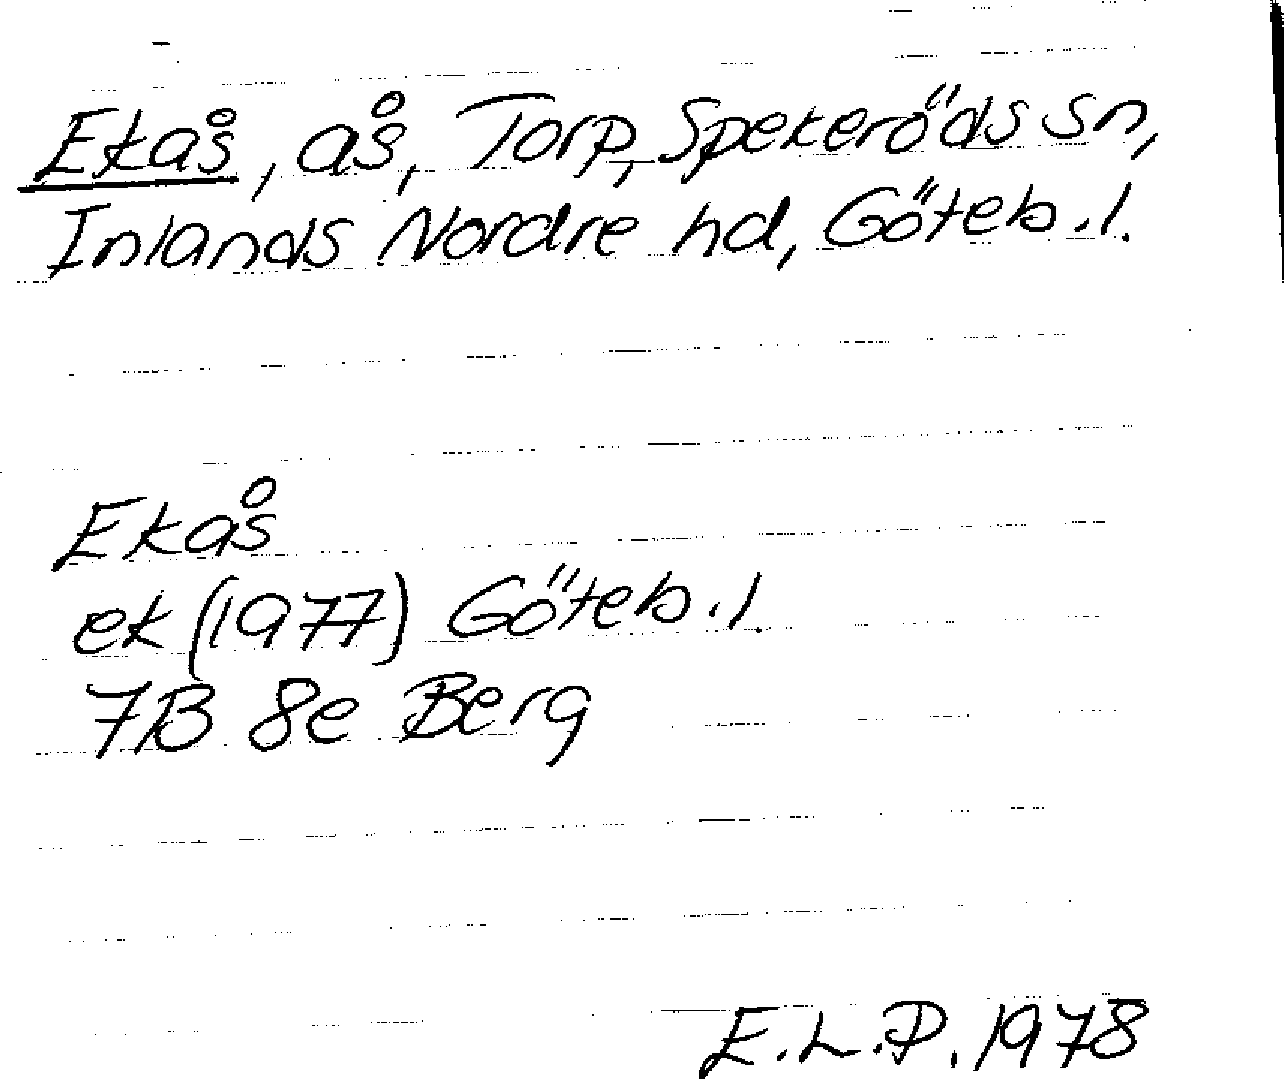 Ekås, ås, Torp, Spekeröds sn,
Inlands Nordre hd, Göteb.l.
Ekås
ek (1977) Göteb.l.
7B 8e Berg
E.L.P. 1978